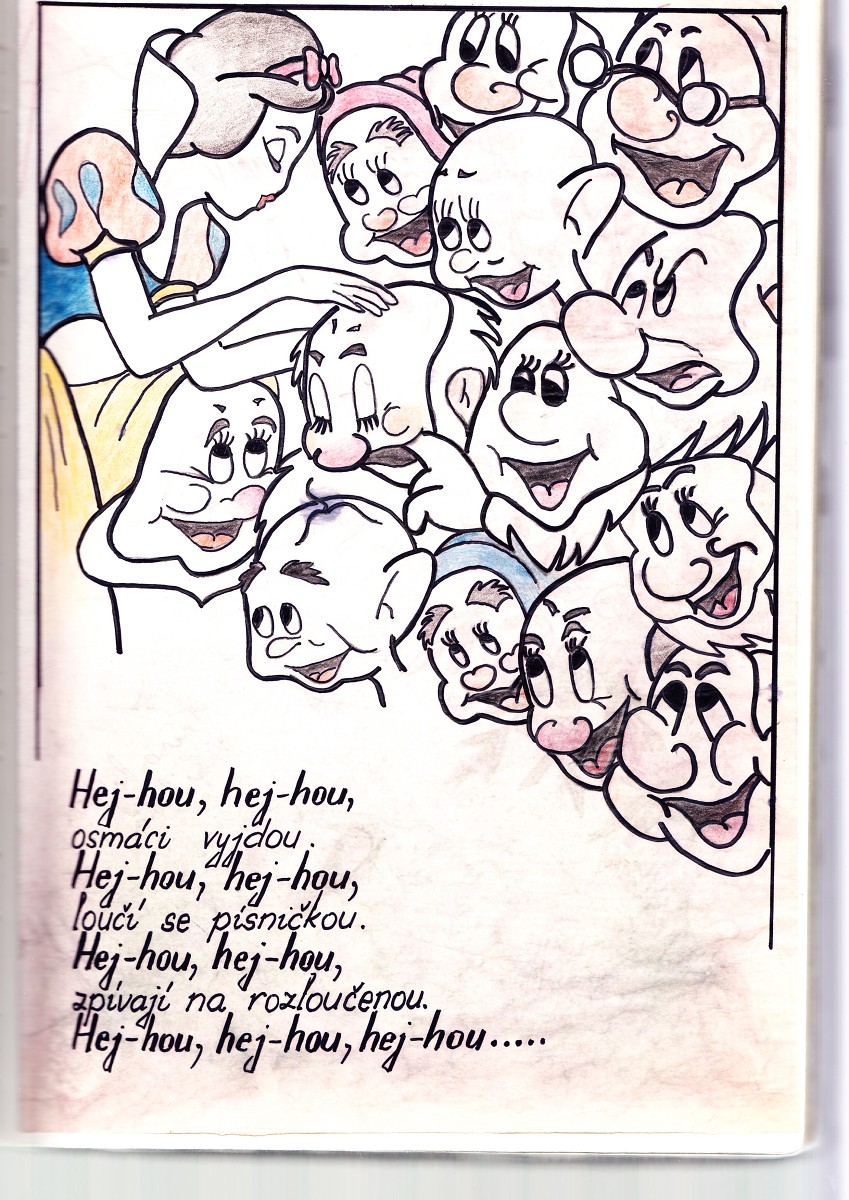 Hej-hou, hej-hou,
osmáci vyjdou.
Hej-hou, hej-hou,
loučí se písničkou.
Hej-hou, hej-hou,
zpívají na rozloučenou.
Hej-hou, hej-hou, hej-hou.....